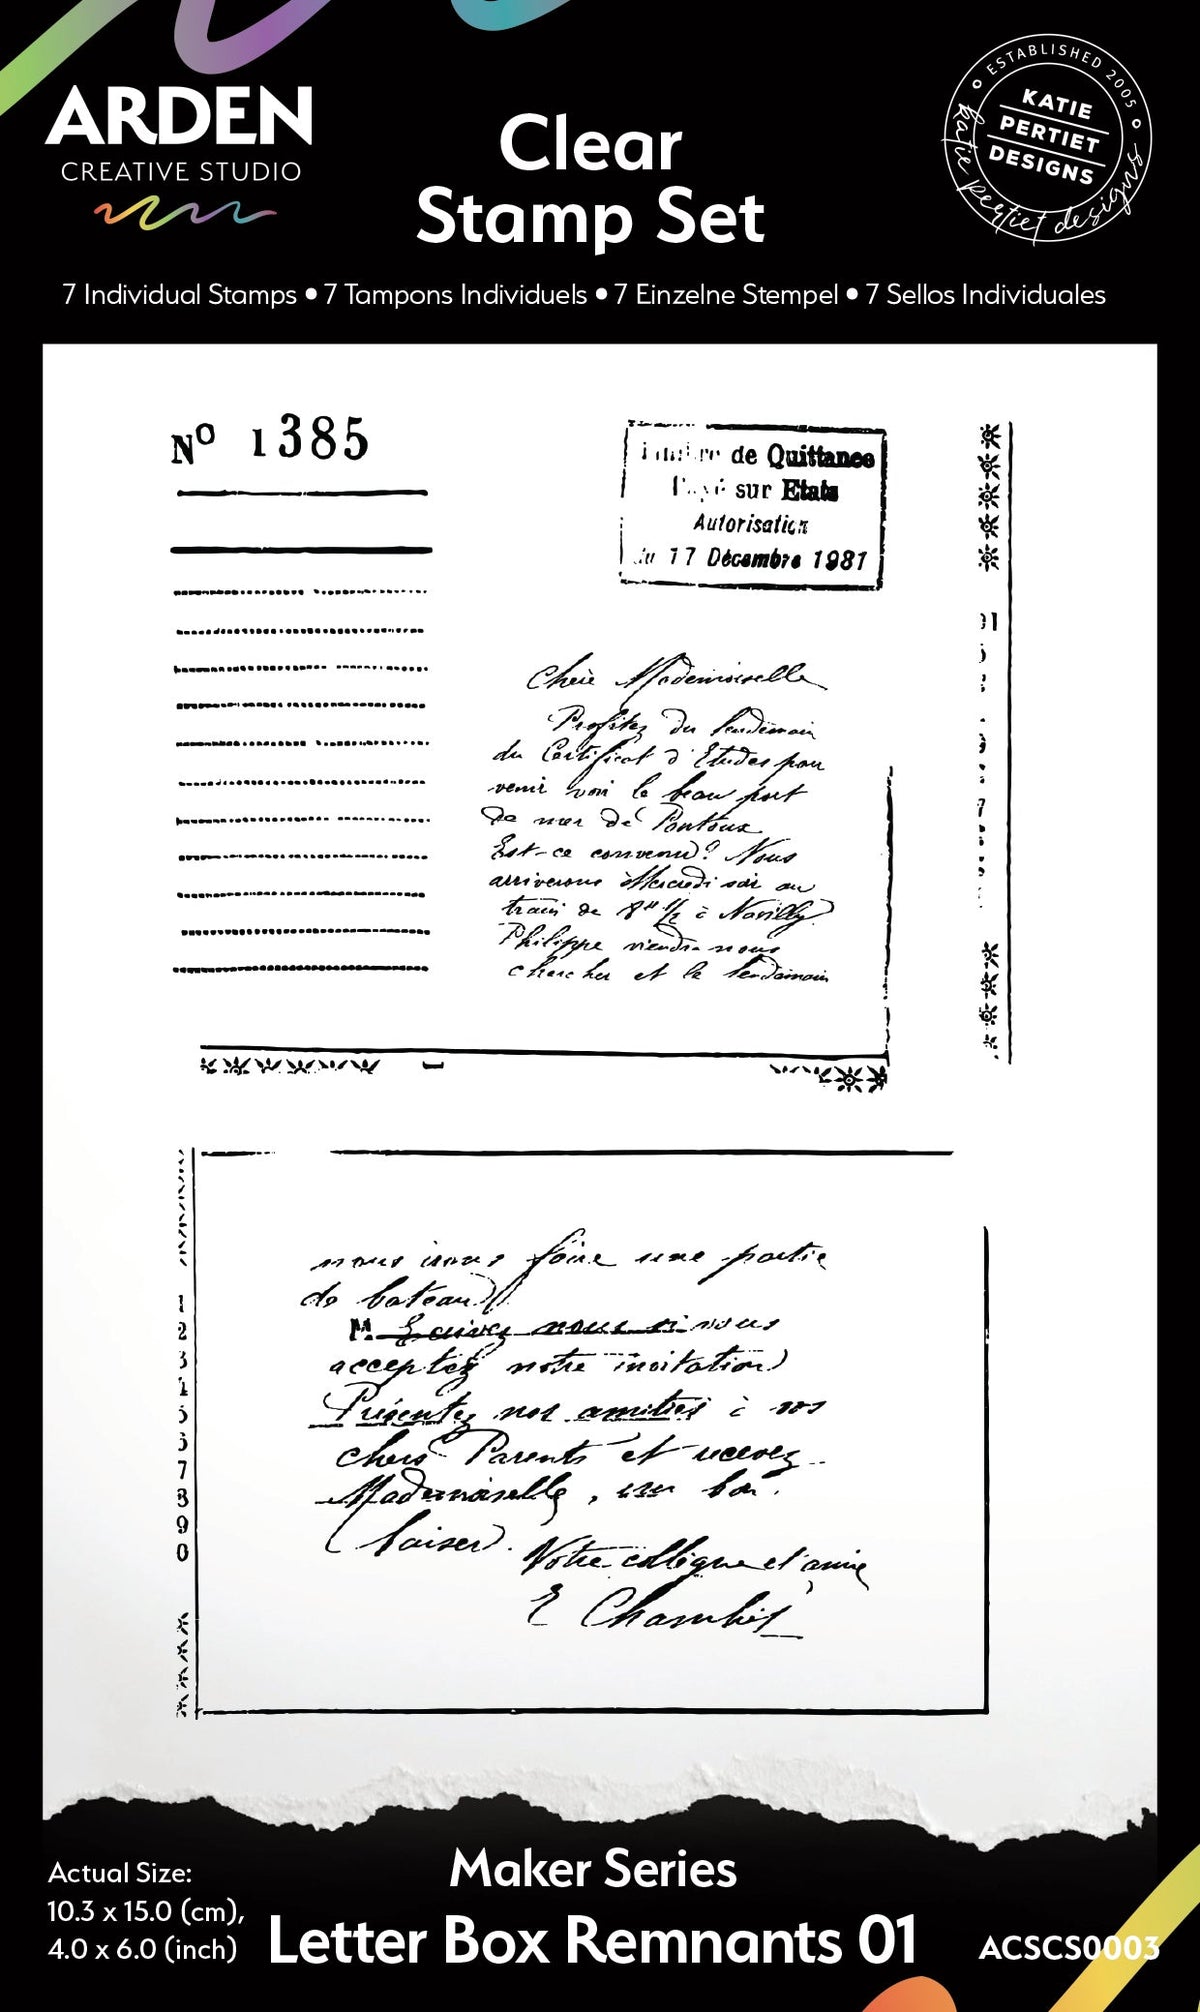 ARDEN
CREATIVE STUDIO
Clear
Stamp Set
ESTABLISHED 2005
KATIE
PERTIET
DESIGNS
katie pertiet designs
7 Individual Stamps • 7 Tampons Individuels • 7 Einzelne Stempel • 7 Sellos Individuales
Nº 1385
de Quittance
sur Etats
Autorisation
du 17 Décembre 1981
Chère Mademoiselle
Profitez du lendemain
du Certificat d'Etudes pour
venir voir le beau port
de mer de Pontoux
Est-ce convenu? Nous
arriverons Mercredi soir au
train de 8H 1/2 à Navilly
Philippe viendra nous
chercher et le lendemain
nous irons faire une partie
de bateau
Ecrivez nous si vous
acceptez notre invitation
Présentez nos amitiés à vos
chers Parents et recevez
Mademoiselle, un bon
baiser.
Votre collègue et amie
E
1
2
3
7
8
9
0
Actual Size:
10.3 x 15.0 (cm),
4.0 x 6.0 (inch)
Maker Series
Letter Box Remnants 01
ACSCS0003